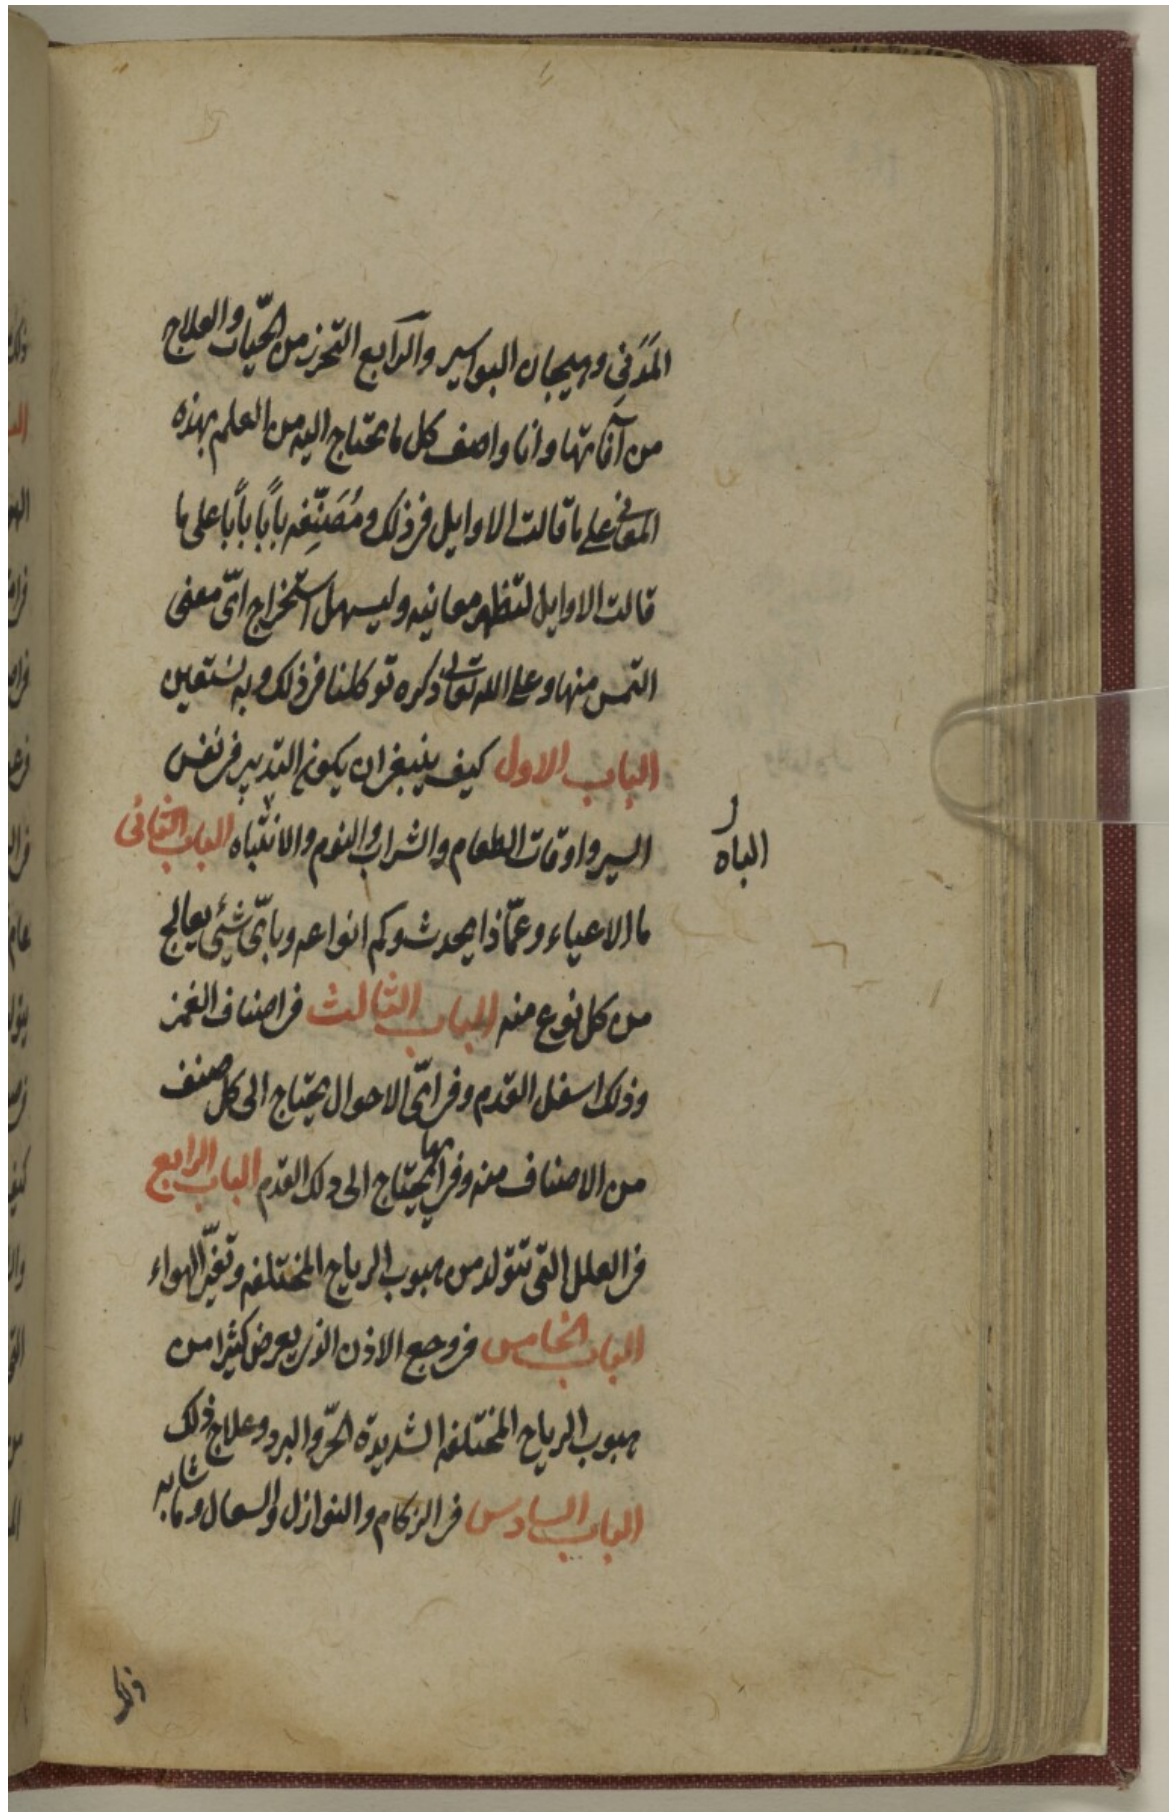 المَدَني وهيجان البواسير والرابع التحرز من الحيّات والعلاج
من آفاتها وانا واصف كل ما يحتاج اليه من العلم بهذه
المعانى على ما قالت الاوايل فى ذلك ومُصَنِّفه باباً باباً على ما
قالت الاوايل لتظهر معانيه وليسهل استخراج اىّ معنى
التمس منها وعلى الله تعالى ذكره توكلنا فى ذلك وبه نستعين
الباب الاول كيف ينبغى ان يكون التدبير فى نفس
السير واوقات الطعام والشراب والنوم والانتباه الباب الثانى
الباه
ما الاعياء وعمّا ذا يحدث وكم انواعه وباىّ شئى يعالج
من كل نوع منه الباب الثالث فى اصناف الغمز
وذلك اسفل القدم وفى اىّ الاحوال يحتاج الى كل صنف
من الاصناف منه وفى ايها يحتاج الى دلك القدم الباب الرابع
فى العلل التى تتولد من هبوب الرياح المختلفه وتغيّر الهواء
الباب الخامس فى وجع الاذن الذى يعرض كثيرا من
هبوب الرياح المختلفه الشديدة الحرّ والبرد وعلاج ذلك
الباب السادس فى الزكام والنوازل والسعال وما شابه
ذلك